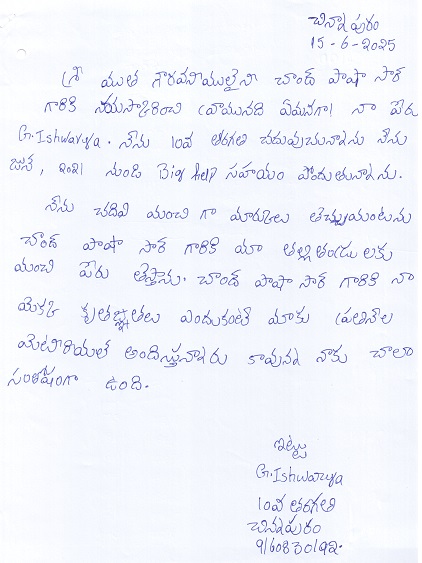 చిన్నాపురం
15-6-2025
శ్రీ ముత గౌరవనీయులైన చాంద్ పాషా సార్
గారికి నమస్కరించి వ్రాయునది ఏమనగా! నా పేరు
G.Ishwarya. నేను 10వ తరగతి చదువుచున్నాను నేను
జున్, 2021 నుండి Big Help సహయం పొందుతున్నాను.
నేను చదివి మంచి గా మార్కులు తెచ్చుయంటును
చాంద్ పాషా సార్ గారికి మా తల్లితండ్రులకు
మంచి పేరు తెస్తాను. చాంద్ పాషా సార్ గారికి నా
యొక్క కృతజ్ఞతలు ఎందుకంటే మాకు ప్రతినెల
మెటిరియల్ అందిస్తున్నారు కావున నాకు చాలా
సంతోషంగా ఉంది.
ఇట్లు
G.Ishwarya
10వ తరగతి
చిన్నాపురం
9160830192.